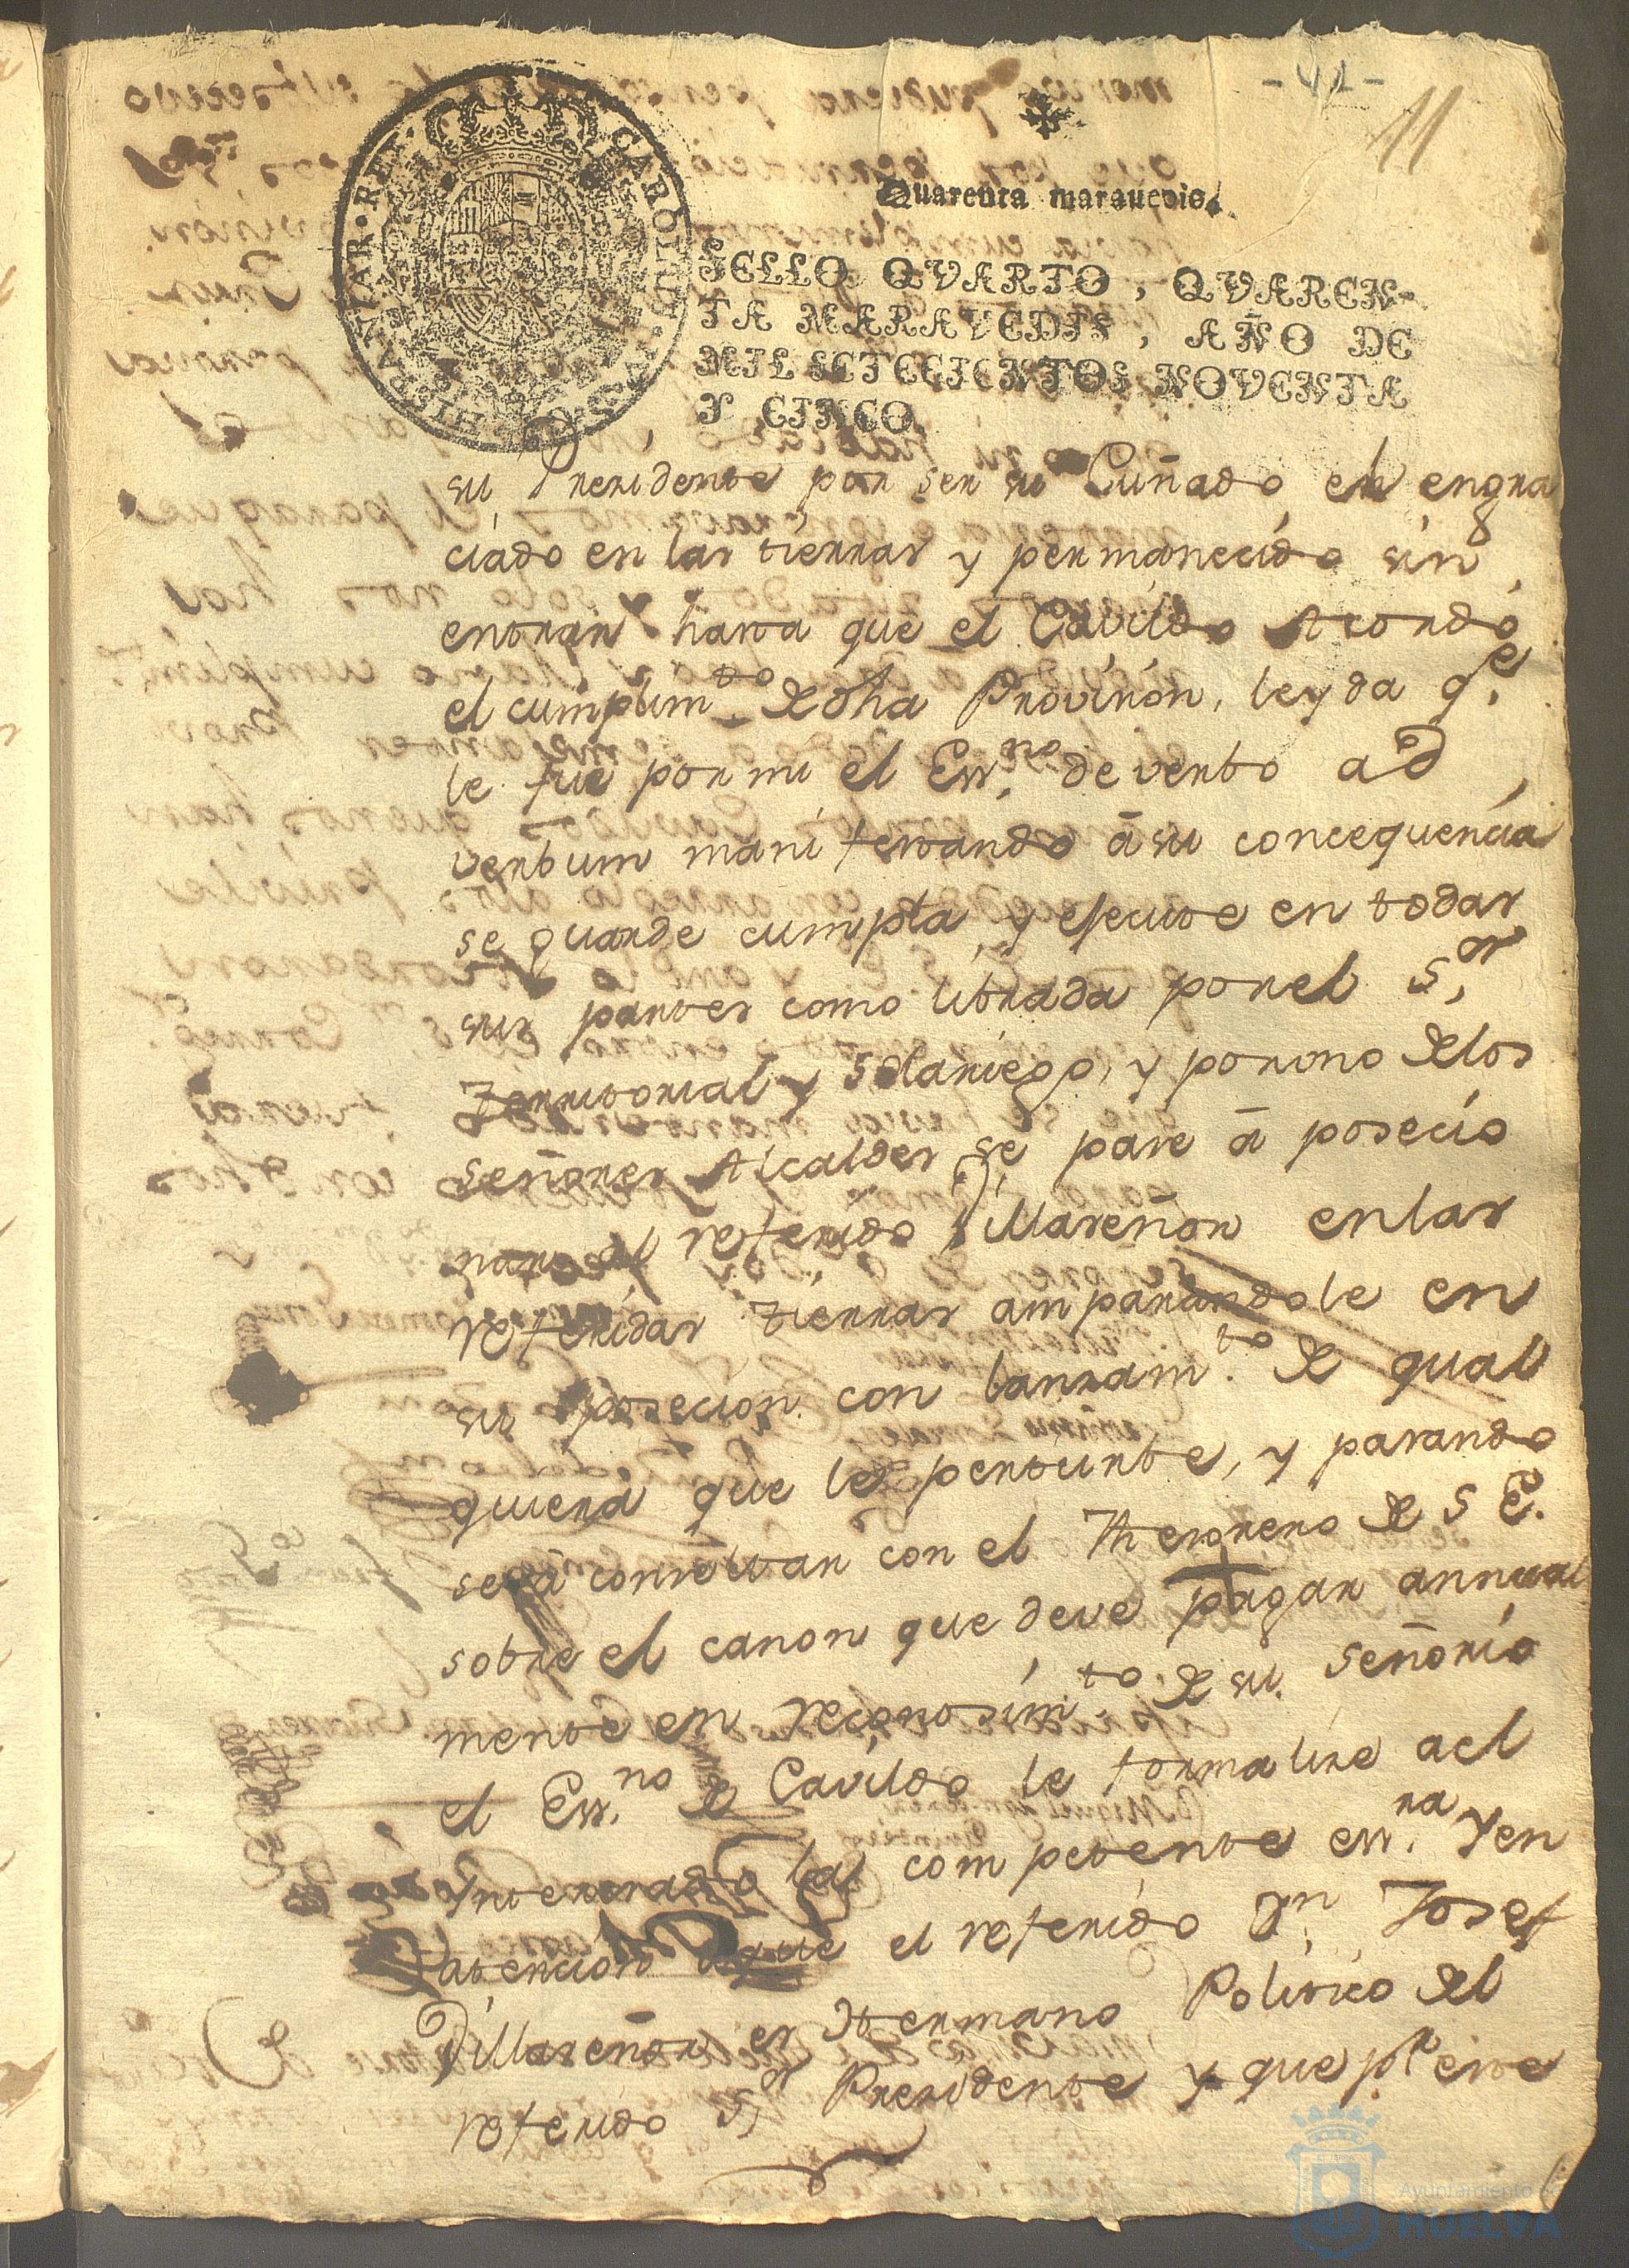 - 41 -
11
Quarenta marauedis.
CAROLUS
HISPANIAR. REX
SELLO QVARTO, QVAREN-
TA MARAVEDIS, AÑO DE
MIL SETECIENTOS NOVENTA
Y CINCO.
su Presidente por ser su Cuñado, el engra
ciado en las tierras y permanecido sin
entrar hasta que el Cavildo Acordó
el cumplim.to de dha Provision, leyda q.e
le fue por mi el Ess.no de verbo ad
verbum manifestando á su concequencia
se guarde cumpla, y efecute en todas
sus partes como librada por el S.or
Territorial y Solariego, y por uno de los
señores Alcaldes se pase á posecio
nar al referido Villaseñor en las
referidas tierras amparandole en
su posecion con lanzam.to de qual
quiera que le perturbe, y pasando
se á conreltar con el Thesorero de S E.
sobre el canon que deve pagar annual
mente en reconosim.to de su señorio
el Ess.no de Cavildo le formalize ael
Interesado la competente ess.ra Y en
atencion a que el referido D.n Josef
Villaseñor es Hermano Politico del
referido S.or Presidente y que p.r este
Ayuntamiento de
HUELVA